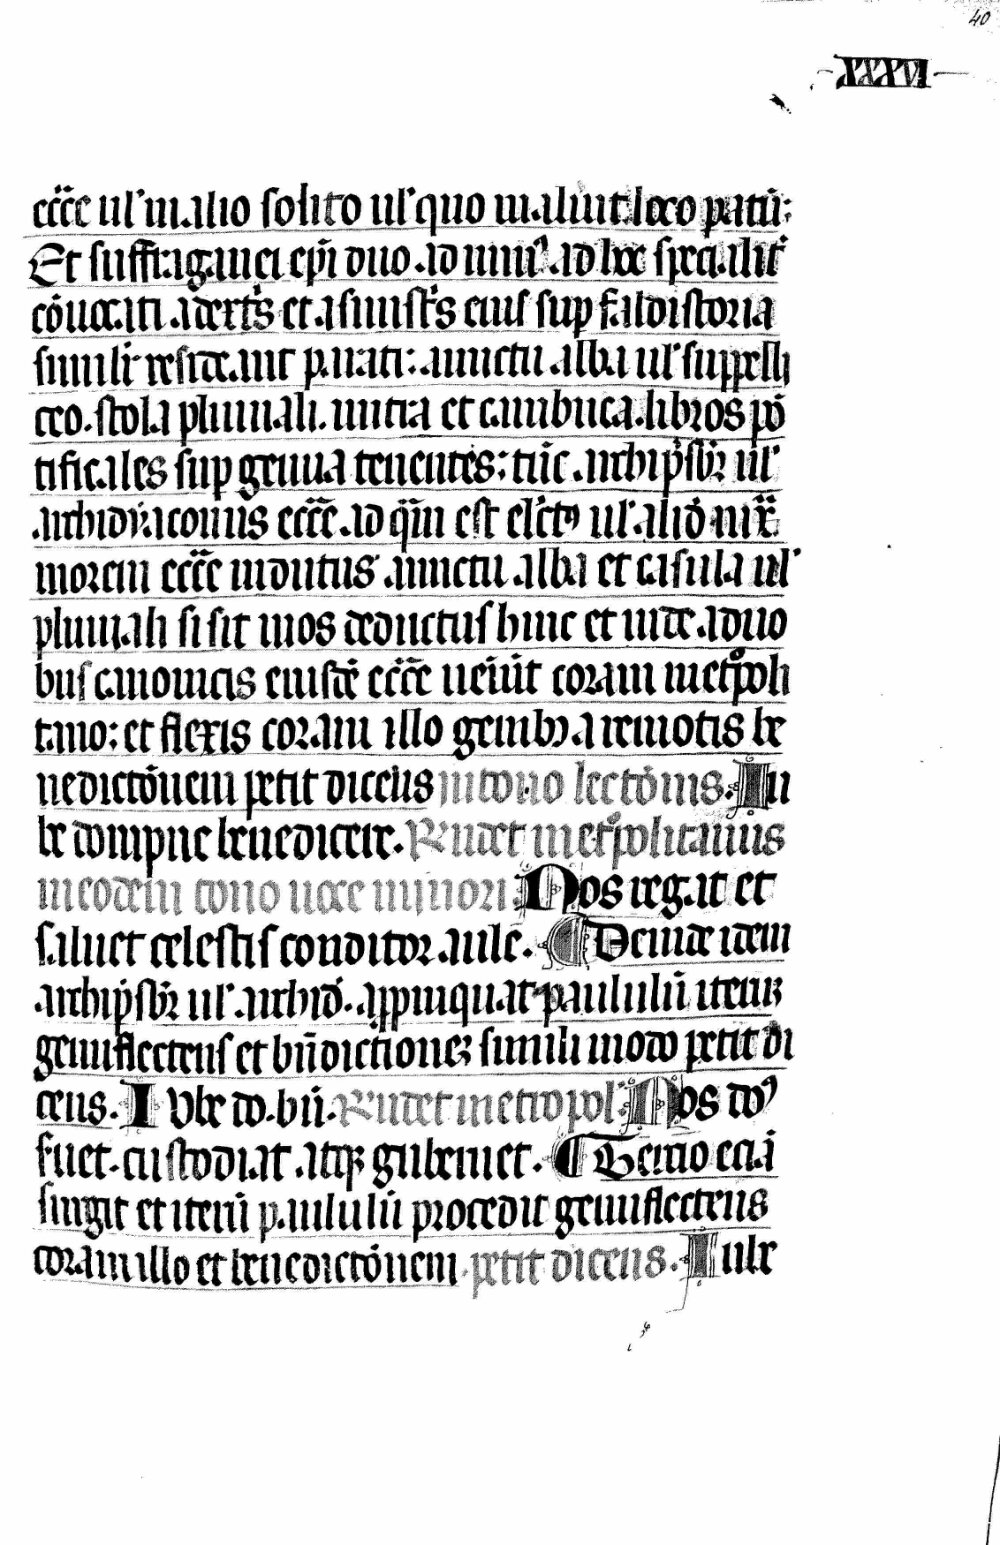 40
XXXVI
ecc̄e ul' in alio solito ul' quo maluit loco parati:
Et suffraganei ep̄i duo ad minus ad hoc specialit̄
cōuocati a dext̄s et a sinist̄s eius sup faldistoria
simili resideant parati: amictu alba ul' suppelli
ceo. stola pluuiali. mitra et cambuca. libros pō
tificales sup genua tenentes: tūc archip̄sbr̄ ul'
archidyaconus ecc̄e ad q̄m est el'ctus ul' aliōr iux̄
morem ecc̄e indutus amictu alba et casula ul'
pluuiali si sit mos deductus hinc et inde a duo
bus canonicis eiusdē ecc̄e uēiūt coram metropoli
tano: et flexis coram illo genibus a remotis be
nedictōnem petit dicens in tono lectōnis. Iu
be dompne benedicere. R'ndet metropolitanus
in eodem tono uoce minori Nos regat et
saluet celestis conditor aule. Deinde idem
archip̄sbr̄ ul' archid̄. appinquat paululū iterūq
genuflectens et bn̄dictionez simili modo petit di
cens. Iube do. bn̄. R'ndet metropol' Nos dn̄s
suet. custodiat atq gubernet. Tercio eciā
surgit et iterū paululū procedit genuflectens
coram illo et benedictōnem petit dicens. Iube